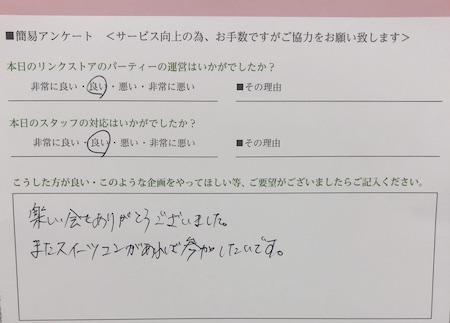 ■簡易アンケート <サービス向上の為、お手数ですがご協力をお願い致します>
本日のリンクストアのパーティーの運営はいかがでしたか?
非常に良い・良い・悪い・非常に悪い ■その理由
本日のスタッフの対応はいかがでしたか?
非常に良い・良い・悪い・非常に悪い ■その理由
こうした方が良い・このような企画をやってほしい等、ご要望がございましたらご記入ください。
楽しい会をありがとうございました。
またスイーツコンがあれば参加したいです。